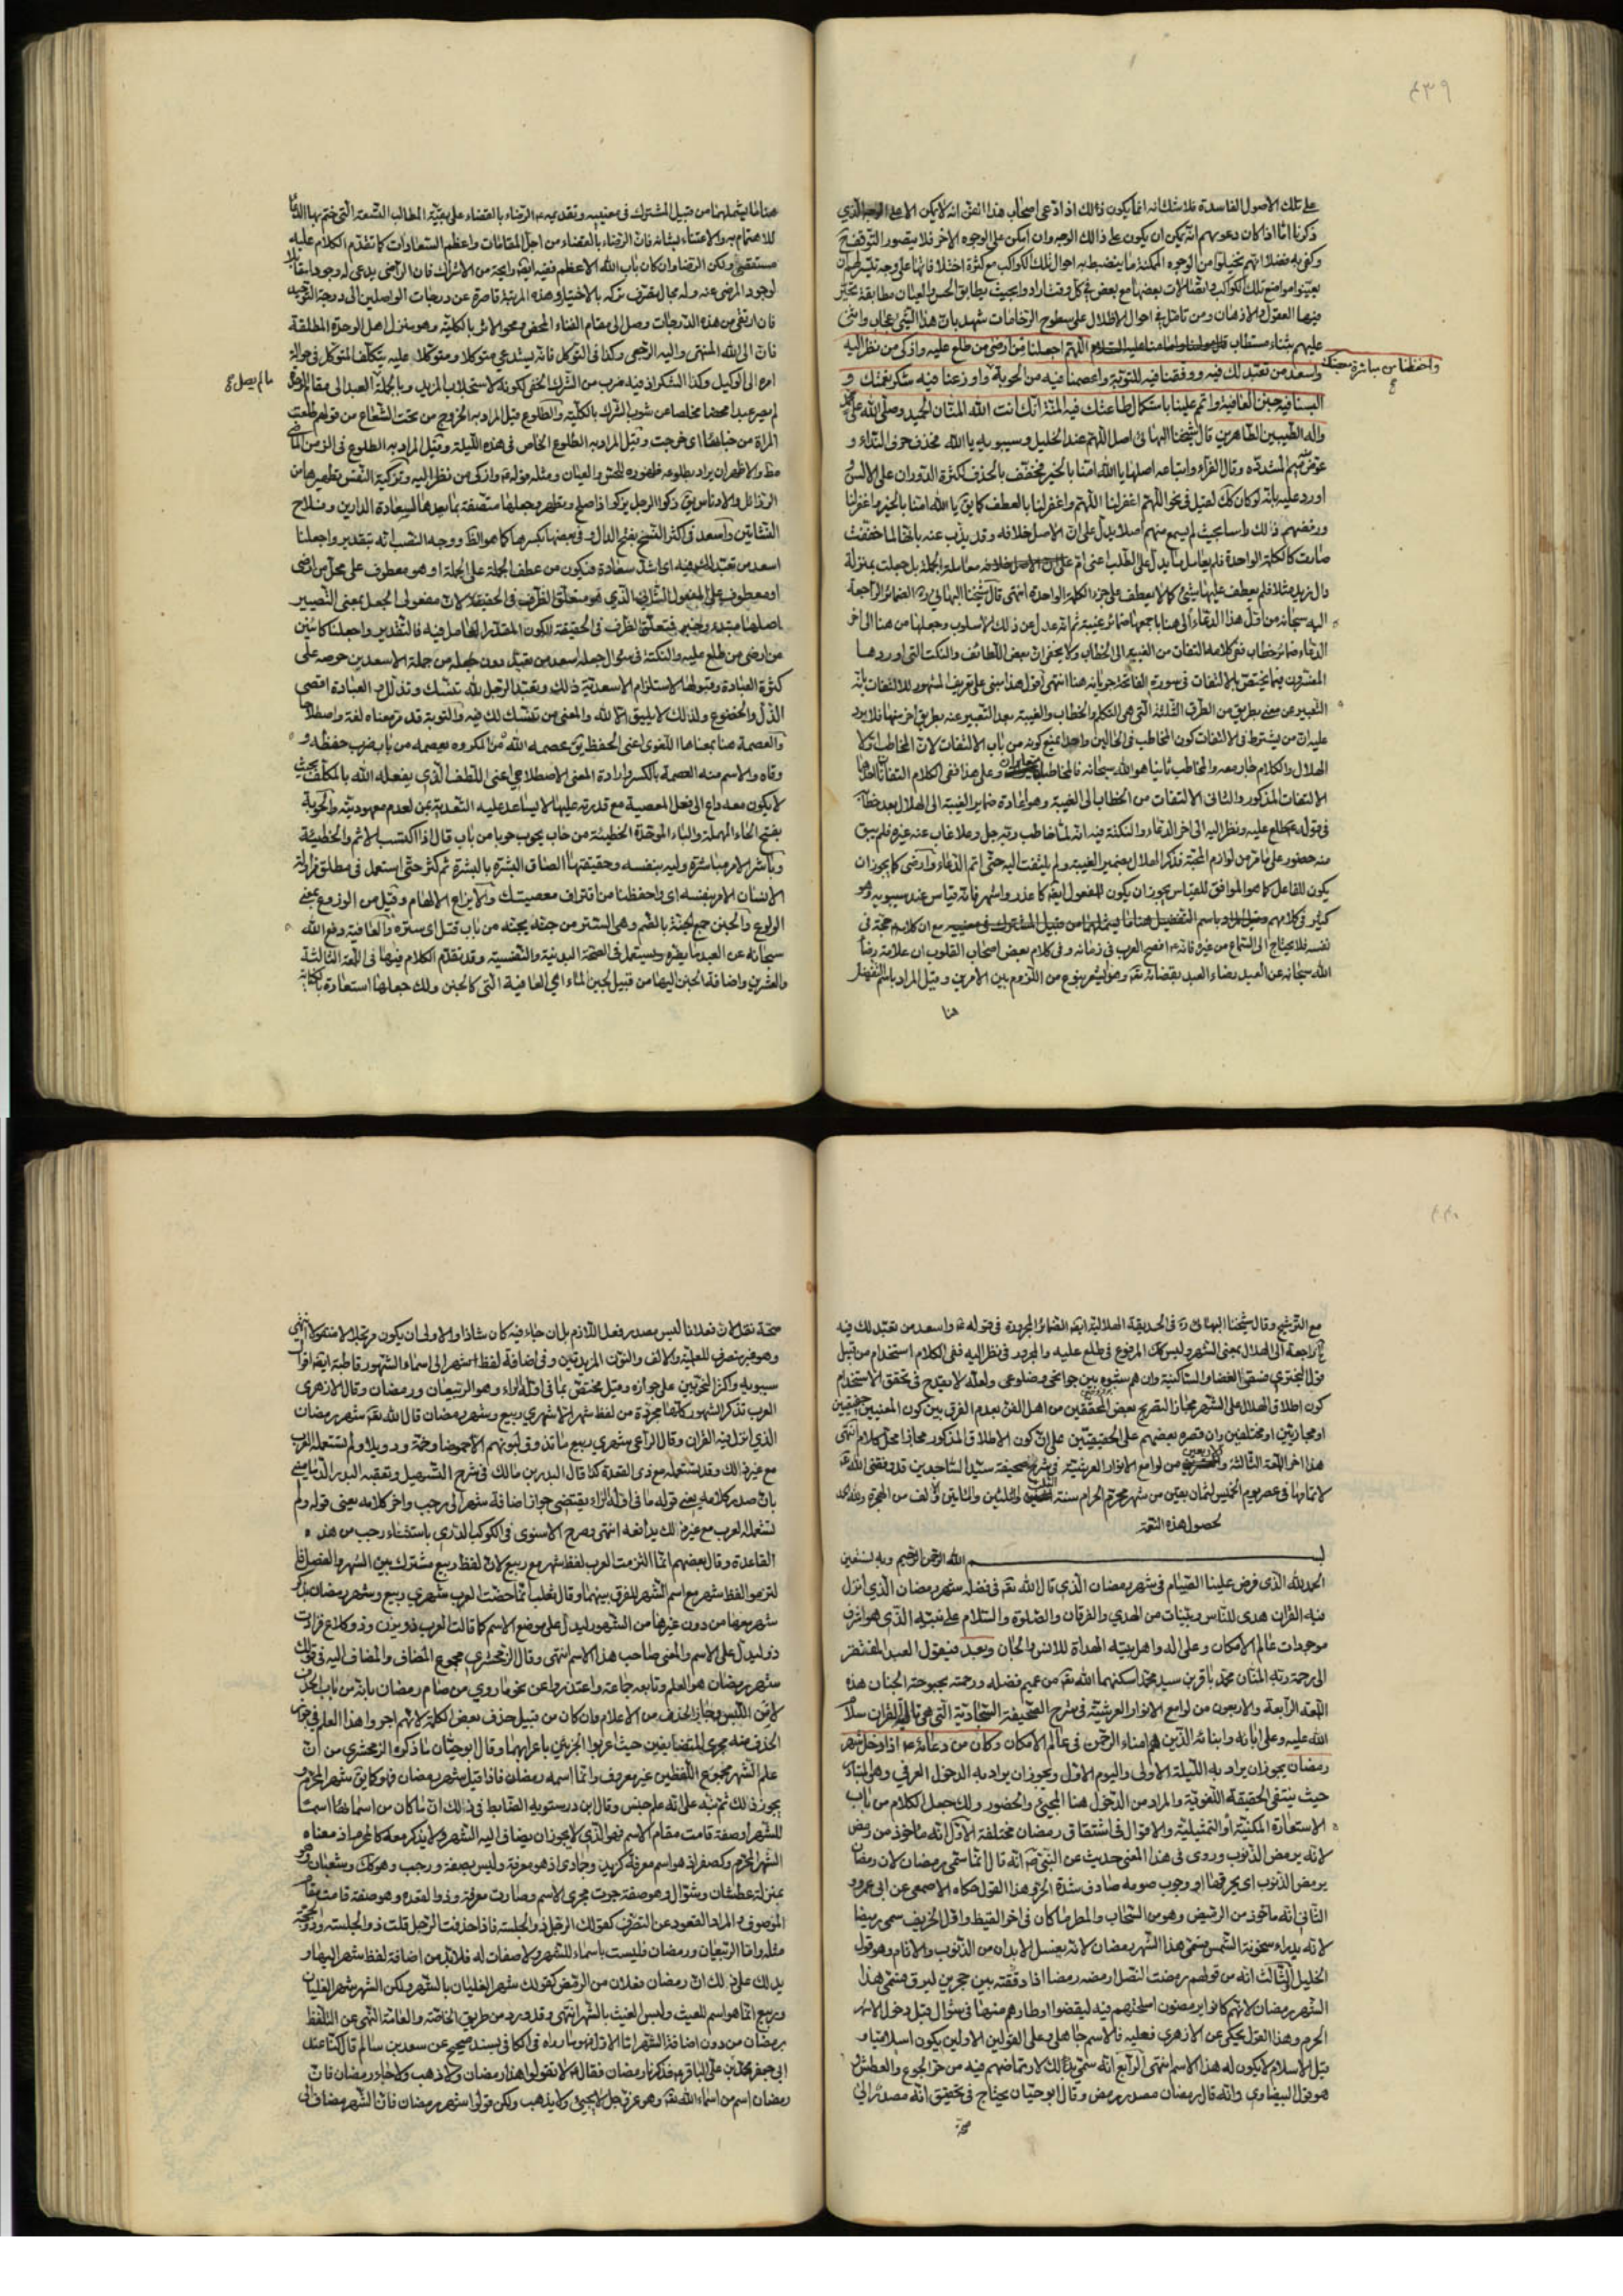 ٤٣٩
على تلك الأصول الفاسدة فلا شك انه انما يكون ذالك اذ ادعى اصحاب هذا الفن انه لا يمكن الا على الوجه الذي
ذكرنا امّا اذا كان دعويهم انّه يمكن ان يكون على ذالك الوجه وان امكن على الوجوه الاخر فلا يتصور التوقف ح
وكفى بهم فضلا انهم تخيلوا من الوجوه الممكنة ما ينضبط به احوال تلك الكواكب مع كثرة اختلافاتها على وجه تيسّر لهم ان
يعيّنوا مواضع تلك الكواكب و اتصالات بعضها مع بعض في كل وقت ارادوا بحيث يطابق الحس والعيان مطابقة تتحيّر
فيها العقول والاذهان ومن تامّل في احوال الاظلال على سطوح الرخامات شهد بانّ هذا لشيء عجاب واثنى
عليهم بثناء مستطاب اللّهمّ اجعلنا من ارضى من طلع عليه وازكى من نظر اليه
واسعد من تعبّد لك فيه ووفّقنا فيه للتوبة واعصمنا فيه من الحوبة واوزعنا فيه شكر نعمتك و
واحفظنا من مباشرة معصيتك
البسنا فيه جنن العافية واتمم علينا باستكمال طاعتك فيه المنّة انّك انت الله المنّان الحميد وصلّى الله على محمد
وآله الطّيبين الطّاهرين قال شيخنا البهائي اصل اللّهمّ عند الخليل وسيبويه يا الله فحذف حرف النداء و
عوّض الميم المشدّدة وقال الفرّاء واتباعه اصلها يا الله امّنا بالخير فخفّفت بالحذف لكثرة الدوران على الالسن
اورد عليه بانّه لو كان كك لقيل في نحو اللّهمّ اغفر لنا اللّهمّ واغفر لنا بالعطف كما يق يا الله امّنا بالخير واغفر لنا
ورفضهم ذالك راسا بحيث لم يسمع منهم اصلا يدلّ على انّ الاصل خلافه وقد يذبّ عنه بانّها لما خفّفت
صارت كالكلمة الواحدة فلم يعامل ما يدلّ على الطلب اعنى امّ معاملة الجملة بل جعلت بمنزلة
دال زيد مثلا فلم يعطف عليها شيء كما لا يعطف على جزء الكلمة الواحدة انتهى قال شيخنا البهائي ره الضمائر الراجعة
اليه سبحانه من اوّل هذا الدعاء الى هنا باجمعها ضمائر غيبة ثم انّه عدل عن ذلك الاسلوب وجعلها من هنا الى اخر
الدعاء ضمائر خطاب ففي كلامه التفات من الغيبة الى الخطاب ولا يخفى انّ بعض اللّطائف والنكت التي اوردها
المفسّرون فيما يختصّ بالالتفات في سورة الفاتحة جريانه هنا انتهى اقول هذا مبني على تعريف المشهور للالتفات بانّه
التعبير عن معنى بطريق من الطرق الثلثة التي هي التكلم والخطاب والغيبة بعد التعبير عنه بطريق اخر منها فلا يرد
عليه انّ من يشترط في الالتفات كون المخاطب في الحالين واحدا يمنع كونه من باب الالتفات لانّ المخاطب اوّلا
الهلال والكلام جار معه والمخاطب ثانيا هو الله سبحانه فالمخاطبان متغايران وعلى هذا ففي الكلام التفاتان احدهما
الالتفات المذكور والثاني الالتفات من الخطاب الى الغيبة وهو اعادة ضمير الغيبة الى الهلال بعد خطابه
في قوله ع طلع عليه ونظر اليه الى اخر الدعاء والنكتة فيه انّه لمّا خاطب ربّه جلّ وعلا غاب عنه غيره فلم يبق
منه حضور على ما قرّ من لوازم المحبّة فذكر الهلال بضمير الغيبة ولم يلتفت اليه حتّى اتمّ الدعاء وارضى كما يجوز ان
يكون للفاعل كما هو الموافق للقياس يجوز ان يكون للمفعول ايضا كما عذر واشهر فانّه قياس عند سيبويه وهو
كثير في كلامهم مع ان كلامه حجّة في
نفسه فلا يحتاج الى السّماع من غيره فانّه افصح العرب في زمانه وفي كلام بعض اصحاب القلوب ان علامة رضا
الله سبحانه عن العبد رضاء العبد بقضائه تعالى وهو يشعر بنوع من اللّزوم بين الامرين وقيل المراد باسم التفضيل
هنا
هنا ما يشملهما من قبيل المشترك في معنييه وتقديمه الرّضاء بالقضاء على بقيّة المطالب التّسعة الّتي ختم بها الدعاء
للاهتمام به والاعتناء بشانه فانّ الرّضاء بالقضاء من اجلّ المقامات واعظم السّعادات كما تقدّم الكلام عليه
مستقصى ولكن الرضا وان كان باب الله الاعظم ففيه ايضا رايحة من الاشراك فان الرّاضي يدعى له وجودا مقابلا
لوجود المرضى عنه وله مجال تصرّف تركه بالاختيار وهذه المرتبة قاصرة عن درجات الواصلين الى درجة التوحيد
فان ارتقى من هذه الدّرجات وصل الى مقام الفناء المحض ومحو الاثر بالكليّة وهو منزل اهل الوحدة المطلقة
فانّ الى الله المنتهى واليه الرّجعى وكذا في التوكّل فانّه يستدعي متوكلا ومتوكّلا عليه يتكلّف المتوكّل في حوالة
امره الى الوكيل وكذا الشكر اذ فيه ضرب من الشّرك الخفي لكونه لاستجلاب المزيد وبالجملة العبد الى مقام الرّضا
ما لم يصل
لم يصر عبدا محضا مخلصا من شوب الشّرك بالكليّة والطلوع قيل المراد به الخروج من تحت الشعاع من قولهم طلعت
المراة من خبائها اى خرجت وقيل المراد به الطّلوع الخاص في هذه اللّيلة وقيل المراد به الطلوع في الزمن الماضي
مط والاظهر ان يراد بطلوعه ظهوره للحسّ والعيان ومثله قوله ع وازكى من نظر اليه وتزكية النّفس تطهيرها من
الرّذائل والادناس يق زكى الرجل يزكو اذا صلح وبتطهّر وجعلها متّصفة بما يعدّها لسعادة الدارين وفلاح
النّشاتين واسعد في اكثر النّسخ بفتح الدال وفي بعضها بكسرها كما هو الظّ ووجه النّصب انّه بتقدير واجعلنا
اسعد من تعبّد لك فيه اى اشدّ سعادة فيكون من عطف الجملة على الجملة او هو معطوف على محلّ من ارضى
او معطوف على المفعول الثّاني الّذي هو متعلّق الظّرف في الحقيقة لانّ مفعولى الجعل بمعنى التّصيير
اصلهما مبتدء وخبر فتعلّق الظرف في الحقيقة لكون المقدّر العامل فيه فالتّقدير واجعلنا كائنين
من ارضى من طلع عليه والنكتة في سؤال جعله اسعد من تعبّد دون جعله من جملة الاسعدين حرصه على
كثرة العبادة وقبولها لاستلزام الاسعديّة ذالك وتعبّد الرّجل لله تنسّك وتذلّل و العبادة اقصى
الذّل والخضوع ولذلك لا يليق الّا لله والمعنى من تنسّك لك فيه والتوبة قد مرّ معناه لغة واصطلاحا
والعصمة هنا بمعناها اللغوى اعنى الحفظ يق عصمه الله من المكروه يعصمه من باب ضرب حفظه و
وقاه والاسم منه العصمة بالكسر وارادة المعنى الاصطلاحي اعنى اللّطف الّذي يفعله الله بالمكلّف بحيث
لا يكون معه داع الى فعل المعصية مع قدرته عليها لا يساعد عليه التّعدية بمن لعدم معهوديّته والحوبة
بفتح الحاء المهملة والباء الموحّدة الخطيئة من حاب يحوب حوبا من باب قال اذا اكتسب الاثم والخطيئة
وباشر الامر مباشرة وليه بنفسه وحقيقتها الصاق البشرة بالبشرة ثم كثر حتّى استعمل في مطلق مزاولة
الانسان الامر بنفسه اى واحفظنا من اقتراف معصيتك والايزاع الالهام وقيل من الوزوع بمعنى
الولوع والجنن جمع الجنّة بالضّم وهى السّتر من جنّه يجنّه من باب قتل اى ستره والعافية دفع الله
سبحانه عن العبد ما يضرّه ويستعمل في الصّحة البدنية والنّفسية وقد تقدّم الكلام فيها في اللّمعة الثالثة
والعشرين واضافة الجنن اليها من قبيل لجين الماء اى العافية الّتي كالجنن ولك جعلها استعارة بالكناية
مع التّرشيح وقال شيخنا البهائي ره في الحديقة الهلاليّة ايضا الضمائر المجرورة في قوله ع واسعد من تعبّد لك فيه
راجعة الى الهلال بمعنى الشهر وليس كك المرفوع في طلع عليه والمجرور في نظر اليه ففي الكلام استخدام من قبيل
قول البحتري فسقى الغضا والساكنيه وان هم شبّوه بين جوانحي وضلوعي ولعلّه لا يقدح في تحقق الاستخدام
كون اطلاق الهلال على الشهر مجازا لتصريح بعض المحقّقين من اهل الفنّ بعدم الفرق بين كون المعنيين حقيقيين
او مجازيّين او مختلفين وان قصره بعضهم على الحقيقيّين على انّ كون الاطلاق المذكور مجازا محلّ كلام انتهى
هذا اخر اللّمعة الثّالثة والاربعين من لوامع الانوار العرشية في شرح صحيفة سيّد السّاجدين قد وفّقنى الله تعالى
لاتمامها في عصر يوم الخميس لثمان بقين من شهر محرّم الحرام سنة الثلث والثلثين والمائتين والف من الهجرة وله الحمد
لحصول هذه النّعمة
بسم الله الرّحمن الرّحيم وبه نستعين
الحمد لله الّذي فرض علينا الصّيام في شهر رمضان الّذي قال الله تعالى في فضله شهر رمضان الّذي انزل
فيه القرآن هدى للنّاس وبيّنات من الهدى والفرقان والصّلوة والسّلام على نبيّه الّذي هو اشرف
موجودات عالم الامكان وعلى اله واهل بيته الهداة للانس والجان وبعد فيقول العبد المفتقر
الى رحمة ربّه المنّان محمّد باقر بن سيد محمّد اسكنهما الله تعالى من عميم فضله ورحمته بحبوحة الجنان هذه
اللّمعة الرّابعة والاربعون من لوامع الانوار العرشيّة في شرح الصّحيفة السّجّاديّة الّتي هي تالية القرآن سلام
الله عليه وعلى ابائه وابنائه الّذين هم امناء الرّحمن في عالم الامكان وكان من دعائه ع اذا دخل شهر
رمضان يجوز ان يراد به اللّيلة الاولى واليوم الاوّل ويجوز ان يراد به الدخول العرفي وهو المتبادر
حيث ينتفى الحقيقة اللغويّة والمراد من الدّخول هنا المجيء والحضور ولك جعل الكلام من باب
الاستعارة المكنيّة او التمثيلية والاقوال في اشتقاق رمضان مختلفة الاوّل انّه ماخوذ من رمض
لانّه يرمض الذّنوب وروى في هذا المعنى حديث عن النّبي ص انّه قال انّما سمّى رمضان لانّ رمضان
يرمض الذّنوب اى يحرقها او وجوب صومه صادف شدّة الحرّ وهذا القول حكاه الاصمعى عن ابى عمرو و
الثّاني انّه ماخوذ من الرّميض وهو من السّحاب والمطر ما كان في اخر القيظ واوّل الخريف سمّى رميضا
لانّه يدراء سخونة الشّمس فسمّى هذا الشّهر رمضان لانّه يغسل الابدان من الذّنوب والاثام وهو قول
الخليل الثّالث انّه من قولهم رمضت النّصل ارمضه رمضا اذا دققته بين حجرين ليرقّ فسمّى هذا
الشّهر رمضان لانّهم كانوا يرمضون اسلحتهم فيه ليقضوا اوطارهم منها في شوّال قبل دخول الاشهر
الحرم وهذا القول يحكى عن الازهري فعليه فالاسم جاهلي وعلى القولين الاولين يكون اسلاميّا و
قبل الاسلام لا يكون له هذا الاسم انتهى الرّابع انّه سمّى بذالك لارتماضهم فيه من حرّ الجوع والعطش و
هو قول البيضاوي وانّه قال رمضان مصدر رمض وقال ابو حيّان يحتاج في تحقيق انّه مصدر الى
صحّة
صحّة نقل لانّ فعلانا ليس مصدر فعل اللّازم بل ان جاء فيه كان شاذّا والاولى ان يكون مرتجلا لا منقولا انتهى
وهو غير منصرف للعلميّة والالف والنّون المزيدتين وفي اضافة لفظ شهر الى اسماء الشّهور قاطبة ايضا اقوال
سيبويه واكثر النّحويّين على جوازه وقيل مختصّ بما في اوّله الرّاء وهو الرّبيعان ورمضان وقال الازهرى
العرب تذكر الشهور كلّها مجرّدة من لفظ شهر الّا شهري ربيع وشهر رمضان قال الله تعالى شهر رمضان
الذي انزل فيه القرآن وقال الرّاعي شهري ربيع ما تذوق لبونهم الّا حموضا وخمة ودويلا ولم تستعمله العرب
مع غير ذالك وقد يستعمله مع ذى القعدة كذا قال البدر بن مالك في شرح التّسهيل وتعقبه البدر الدّمامينى
بانّ صدر كلامه يعنى قوله ما في اوّله الرّاء يقتضى جواز اضافة شهر الى رجب واخر كلامه يعنى قوله ولم
تستعمله العرب مع غير ذلك يدافعه انتهى وصرح الاسنوى في الكوكب الدّري باستثناء رجب من هذه
القاعدة وقال بعضهم انّما التزمت العرب لفظ شهر مع ربيع لانّ لفظ ربيع مشترك بين الشهر والفصل فا
لتزموا لفظ شهر مع اسم الشّهر للفرق بينهما وقال ثعلب انّما خصّت العرب شهري ربيع وشهر رمضان بذكر
شهر معها من دون غيرها من الشّهور ليدلّ على موضع الاسم كما قالت العرب ذو يزن وذو كلاع فزادت
ذو ليدلّ على الاسم والمعنى صاحب هذا الاسم انتهى وقال الزّمخشري مجموع المضاف والمضاف اليه في قولك
شهر رمضان هو العلم وتابعه جماعة واعتذروا عن نحو ما روى من صام رمضان بانّه من باب الحذف
لامن اللّبس وجاز الحذف من الاعلام وان كان من قبيل حذف بعض الكلمة لانّهم اجروا هذا العلم في جواز
الحذف منه مجرى المتضايفين حيث اعربوا الجزئين باعرابهما وقال ابو حيّان ما ذكره الزمخشري من انّ
علم الشّهر مجموع اللّفظين غير معروف وانّما اسمه رمضان فاذا قيل شهر رمضان فهو كما يق شهر المحرّم و
يجوز ذلك ثم نبّه على انّه علم جنس وقال ابن درستويه الضّابط في ذالك انّ ما كان من اسمائها اسما
للشّهر او صفة قامت مقام الاسم فهو الّذي لا يجوز ان يضاف اليه الشّهر ولا يذكر معه كالمحرّم اذ معناه
الشّهر المحرّم وكصفر اذ هو اسم معرفة كزيد وجمادى اذ هو معرفة وليس بصفة ورجب وهو كك وشعبان وهو
بمنزلة عطشان وشوّال وهو صفة جرت مجرى الاسم وصارت معرفة وذو القعدة وهو صفة قامت مقام
الموصوف والمراد القعود عن التصرّف كقولك الرّجل ذو الجلسة فاذا حذفت الرّجل قلت ذو الجلسة وذو الحجّة
مثله وامّا الرّبيعان ورمضان فليست باسماء للشّهر ولا صفات له فلا بدّ من اضافة لفظ شهر اليها و
يدلّك على ذلك انّ رمضان فعلان من الرّمض كقولك شهر الغليان بالشّهر ولكن الشّهر شهر الغليان
وربيع انّما هو اسم للغيث وليس الغيث بالشّهر انتهى وقد ورد من طريق الخاصّة والعامّة النّهى عن التلفّظ
برمضان من دون اضافة الشّهر امّا الاوّل فهو ما رواه في الكافي بسند صحيح عن سعد بن سالم قال كنّا عند
ابى جعفر محمّد بن على الباقر ع فذكرنا رمضان فقال ع لا تقولوا هذا رمضان ولا ذهب ولا جاء رمضان فانّ
رمضان اسم من اسماء الله تعالى وهو عزّ وجلّ لا يجيء ولا يذهب ولكن قولوا شهر رمضان فانّ الشّهر مضاف الى